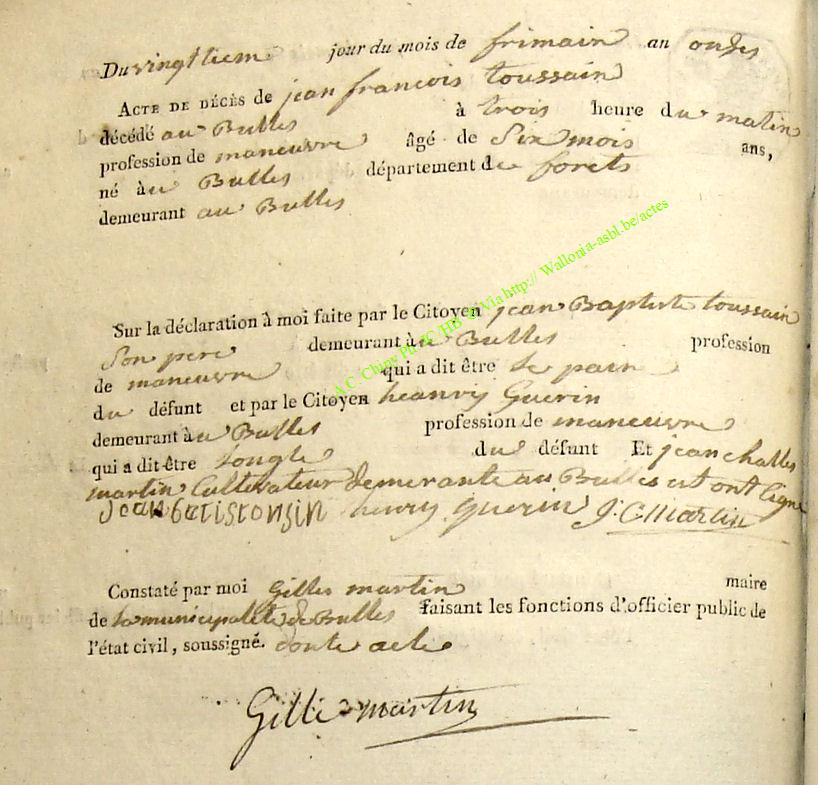 Du vingtiem jour du mois de frimain an onses
ACTE DE DÉCÈS de jean francois toussain
décédé au Bulles à trois heure du matin
profession de maneuvre âgé de Six mois ans,
né àu Bulles département de forets
demeurant au Bulles
Sur la déclaration à moi faite par le Citoyen jean Baptiste toussain
Son pere demeurant àu Bulles profession
de maneuvre qui a dit être le pain
du défunt et par le Citoyen heanry Guerin
demeurant àu Bulles profession de maneuvre
qui a dit être longle du défunt Et jean challes
martin Cultivateur demerante au Bulles est ont Signe
henry guerin J. C martin
Constaté par moi Gilles martin maire
de la municipalete de Bulles faisant les fonctions d'officier public de
l'état civil, soussigné. donte acte
Gille martin
A.C. Chiny Ph JC HB @ Via http:// Wallonia-asbl.be/actes